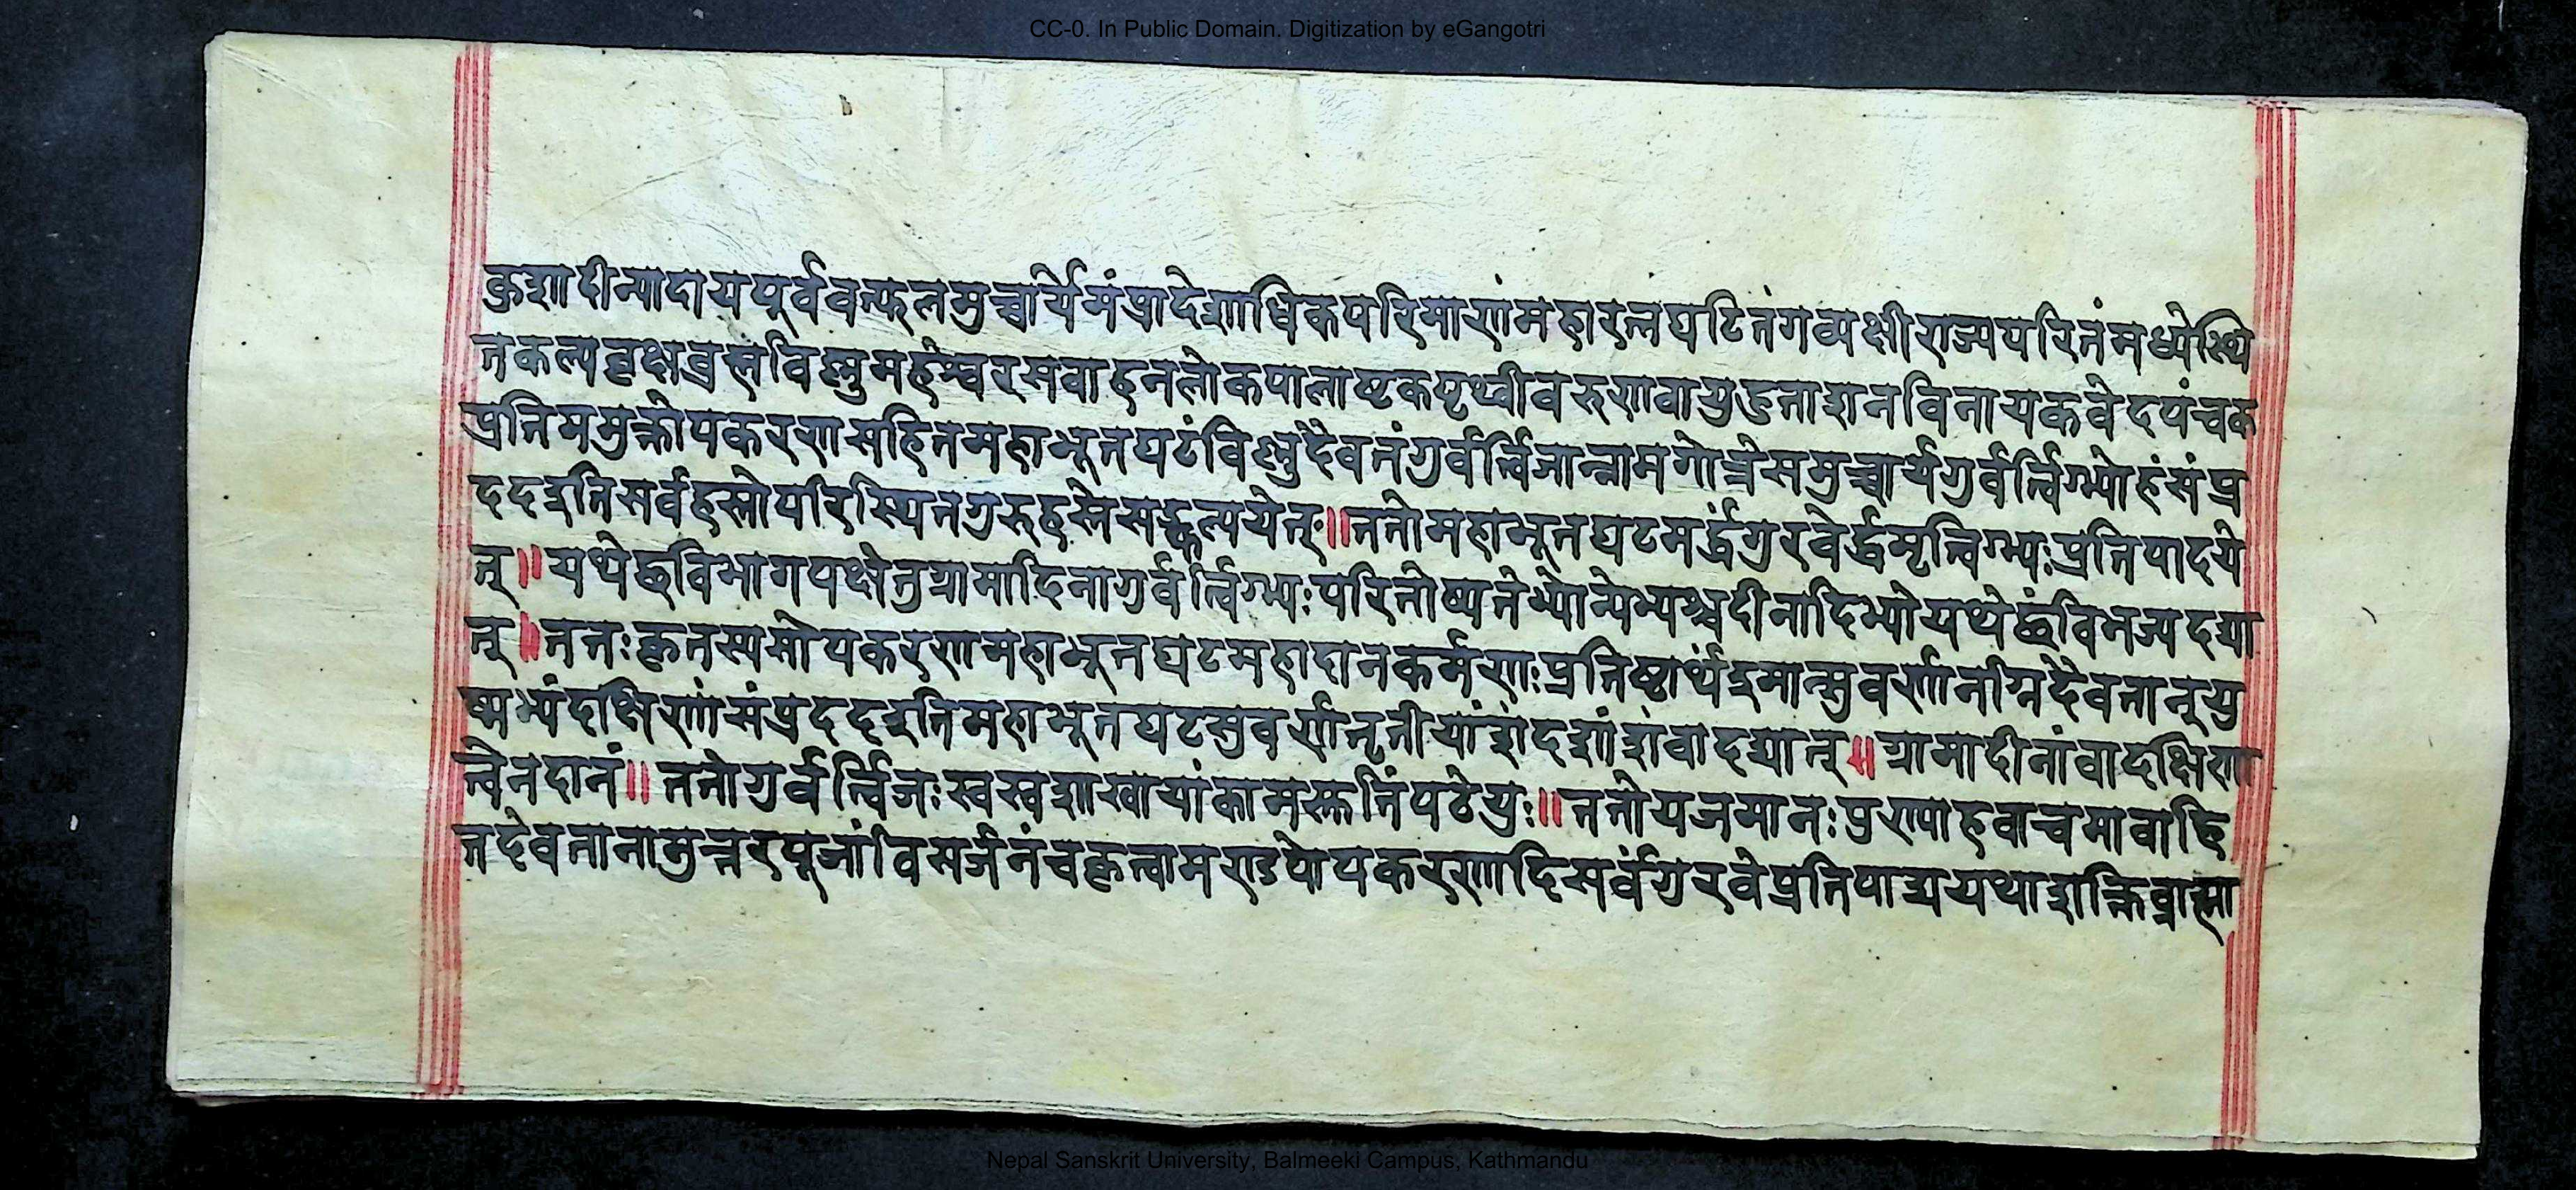 CC-0. In Public Domain. Digitization by eGangotri
कुशादीन्यादायपूर्ववत्फलमुच्चार्येमंप्रादेशाधिकपरिमाणंमहारत्नघटितंगव्यक्षीराज्यपरितंमध्येस्थि
तकल्पवृक्षब्रह्मविष्णुमहेश्वरसवाहनलोकपालाष्टकपृथ्वीवरुणवायुहुताशनविनायकवेदपंचक
प्रतिममुक्तोपकरणसहितमहाभूतघटंविष्णुदैवतंगुर्वर्त्विजान्नामगोत्रेसमुच्चार्यगुर्वर्त्विग्भ्योहंसंप्र
ददइतिसर्वहस्तोपरिस्थितगुरुहस्तेसङ्कल्पयेत्॥ततोमहाभूतघटमर्द्धंगुरवेर्द्धमृत्विग्भ्यःप्रतिपादये
त्॥यथेछविभागपक्षेतुग्रामादिनागुर्वर्त्विग्भ्यःपरितोष्यतेभ्योन्येभ्यश्चदीनादिभ्योयथेछंविभज्यदद्या
त्॥ततःकृतस्यसोपकरणमहाभूतघटमहादानकर्मणःप्रतिष्ठार्थंइमान्सुवर्णानग्निदैवतान्यु
ष्मभ्यंदक्षिणांसंप्रददइतिमहाभूतघटसुवर्णतृतीयांशंदशांशंवादद्यात्॥ग्रामादीनांवादक्षिणा
त्वेनदानं॥ततोगुर्वर्त्विजःस्वस्वशाखायांकामस्तुतिंपठेयुः॥ततोयजमानःपुण्याहवाचमावाहि
तदेवतानामुत्तरपूजांविसर्जनंचकृत्वामण्डपोपकरणादिसर्वंगुरवेप्रतिपाद्ययथाशक्तिब्राह्मा
Nepal Sanskrit University, Balmeeki Campus, Kathmandu